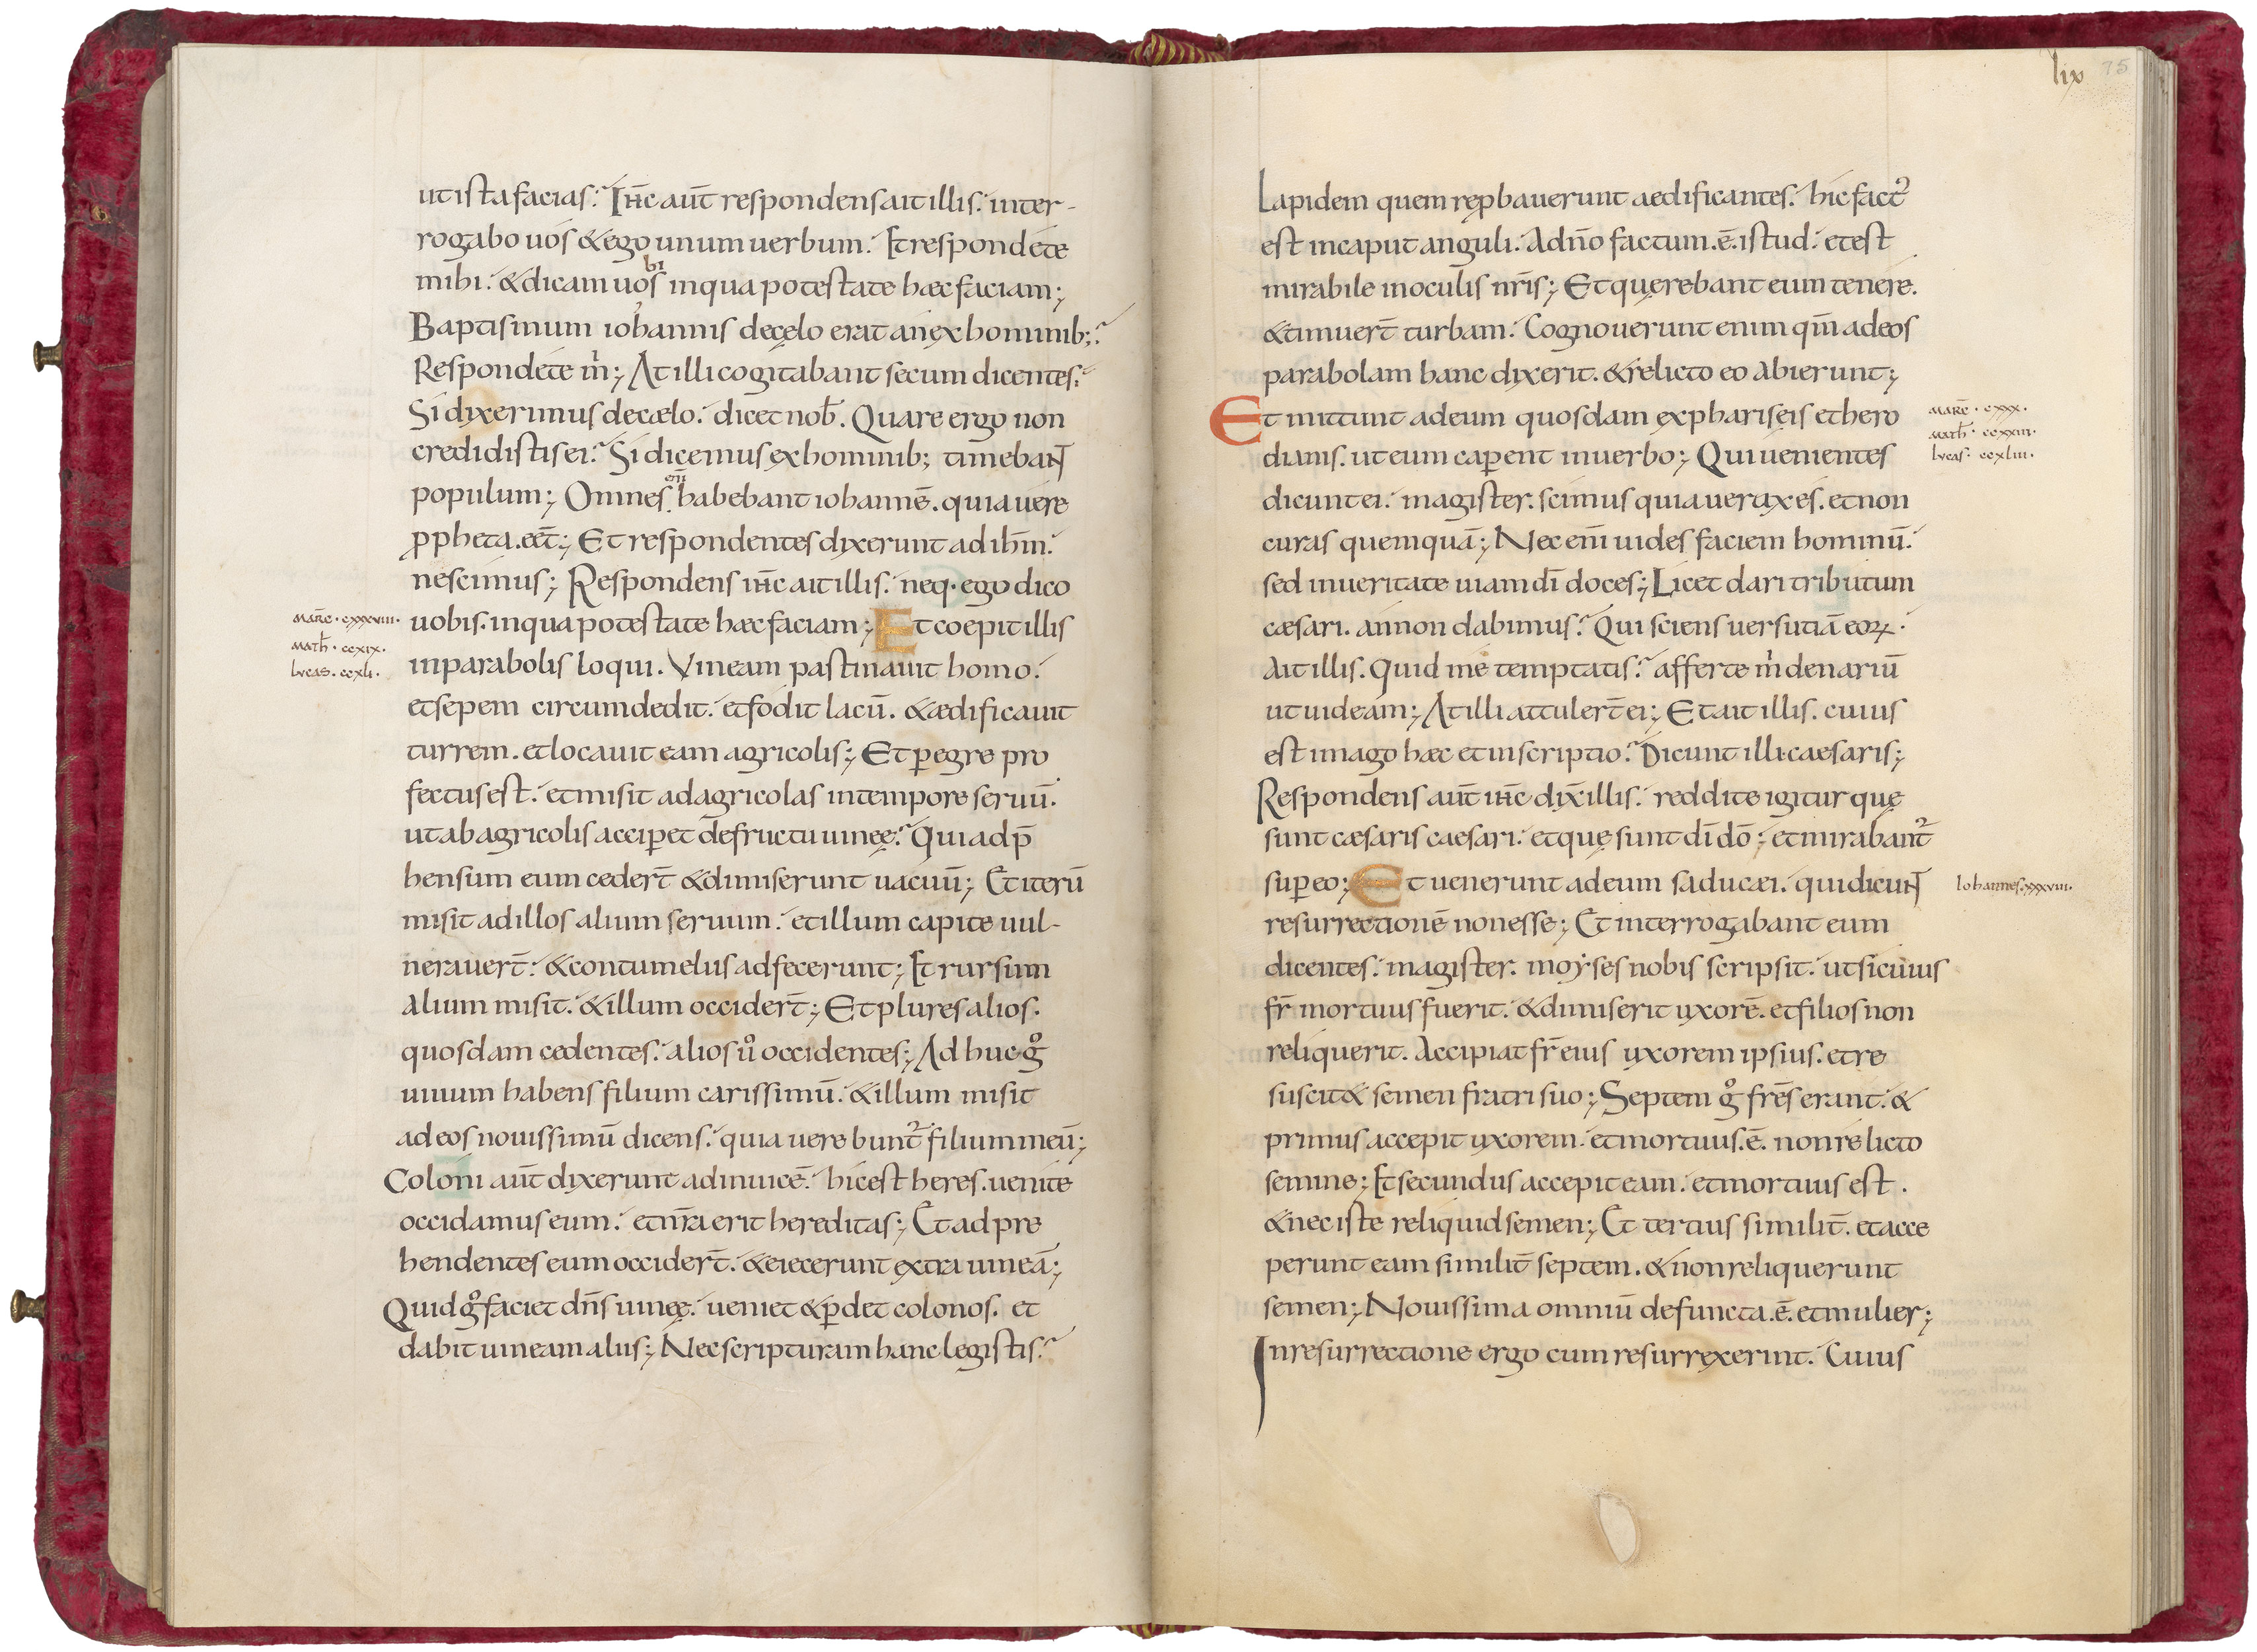 ut ista facias? Ihc̄ aut̄ respondens ait illis. inter-
rogabo uos & ego unum uerbum. Et respondete
bi
mihi. & dicam uos in qua potestate hæc faciam;
Baptismum iohannis de cęlo erat an ex hominib;?
Respondete m̄; At illi cogitabant secum dicentes.
Si dixerimus de cælo. dicet nob̄. Quare ergo non
credidistis ei? Si dicemus ex hominib; timebant
em̄
populum; Omnes habebant iohannē. quia uere
ꝓpheta eēt; Et respondentes dixerunt ad ihm̄.
nescimus; Respondens ihc̄ ait illis. neq· ego dico
marc̄ · cxxxviii ·
math̄ · ccxix ·
lvcas · ccxli ·
uobis. in qua potestate hæc faciam; Et coepit illis
in parabolis loqui. Vineam pastinauit homo.
et sepem circumdedit. et fodit lacū. & ædificauit
turrem. et locauit eam agricolis; Et ꝑegre pro
fectus est. et misit ad agricolas in tempore seruū.
ut ab agricolis acciꝑet de fructu uineę. Qui adp̄
hensum eum cedert̄ & dimiserunt uacuū; Et iterū
misit ad illos alium seruum. et illum capite uul-
nerauert̄. & contumeliis adfecerunt; Et rursum
alium misit. & illum occidert̄; Et plures alios.
quosdam cedentes. alios ůo occidentes; Adhuc gͦ
unum habens filium carissimū. & illum misit
ad eos nouissimū dicens. quia uerebunt᷑ filium meū;
Coloni aut̄ dixerunt ad inuicē. hic est heres. uenite
occidamus eum. et nr̄a erit hereditas; Et adpre
hendentes eum occidert̄. & eiecerunt extra uineā;
Quid gͦ faciet dn̄s uineę. ueniet & ꝑdet colonos. et
dabit uineam aliis; Nec scripturam hanc legistis?
lix 75
Lapidem quem reꝓbauerunt aedificantes. hic fact᷒
est in caput anguli. A dn̄o factum .ē. istud. et est
mirabile in oculis nr̄is; Et quęrebant eum tenere.
& timuert̄ turbam. Cognouerunt enim qm̄ ad eos
parabolam hanc dixerit. & relicto eo abierunt;
Et mittunt ad eum quosdam ex phariseis et hero
marc̄ · cxxx ·
math̄ · ccxxiii ·
lvcas · ccxliii ·
dianis. ut eum caꝑent in uerbo; Qui uenientes
dicunt ei. magister. scimus quia uerax es. et non
curas quemquā; Nec em̄ uides faciem hominū.
sed in ueritate uiam dī doces; Licet dari tributum
cæsari. an non dabimus? Qui sciens uersutiā eoꝝ.
Ait illis. Quid me temptatis? afferte m̄ denariū
ut uideam; At illi attulert̄ ei; Et ait illis. cuius
est imago hæc et inscriptio? Dicunt illi. caesaris;
Respondens aut̄ ihc̄ dix̄ illis. reddite igitur quę
sunt cæsaris caesari. et quę sunt dī dō; et mirabant᷑
suꝑ eo; Et uenerunt ad eum saducæi. qui dicunt
Iohannes · xxxviii ·
resurrectionē non esse; Et interrogabant eum
dicentes. magister. moyses nobis scripsit. ut si cuius
fr̄ mortuus fuerit. & dimiserit uxorē. et filios non
reliquerit. Accipiat fr̄ eius uxorem ipsius. et re
suscit& semen fratri suo; Septem gͦ fr̄es erant. &
primus accepit uxorem. et mortuus .ē. non relicto
semine; Et secundus accepit eam. et mortuus est.
& nec iste reliquid semen; Et tertius similit̄. et acce
perunt eam similit̄ septem. & non reliquerunt
semen; Nouissima omniū defuncta .ē. et mulier;
In resurrectione ergo cum resurrexerint. Cuius